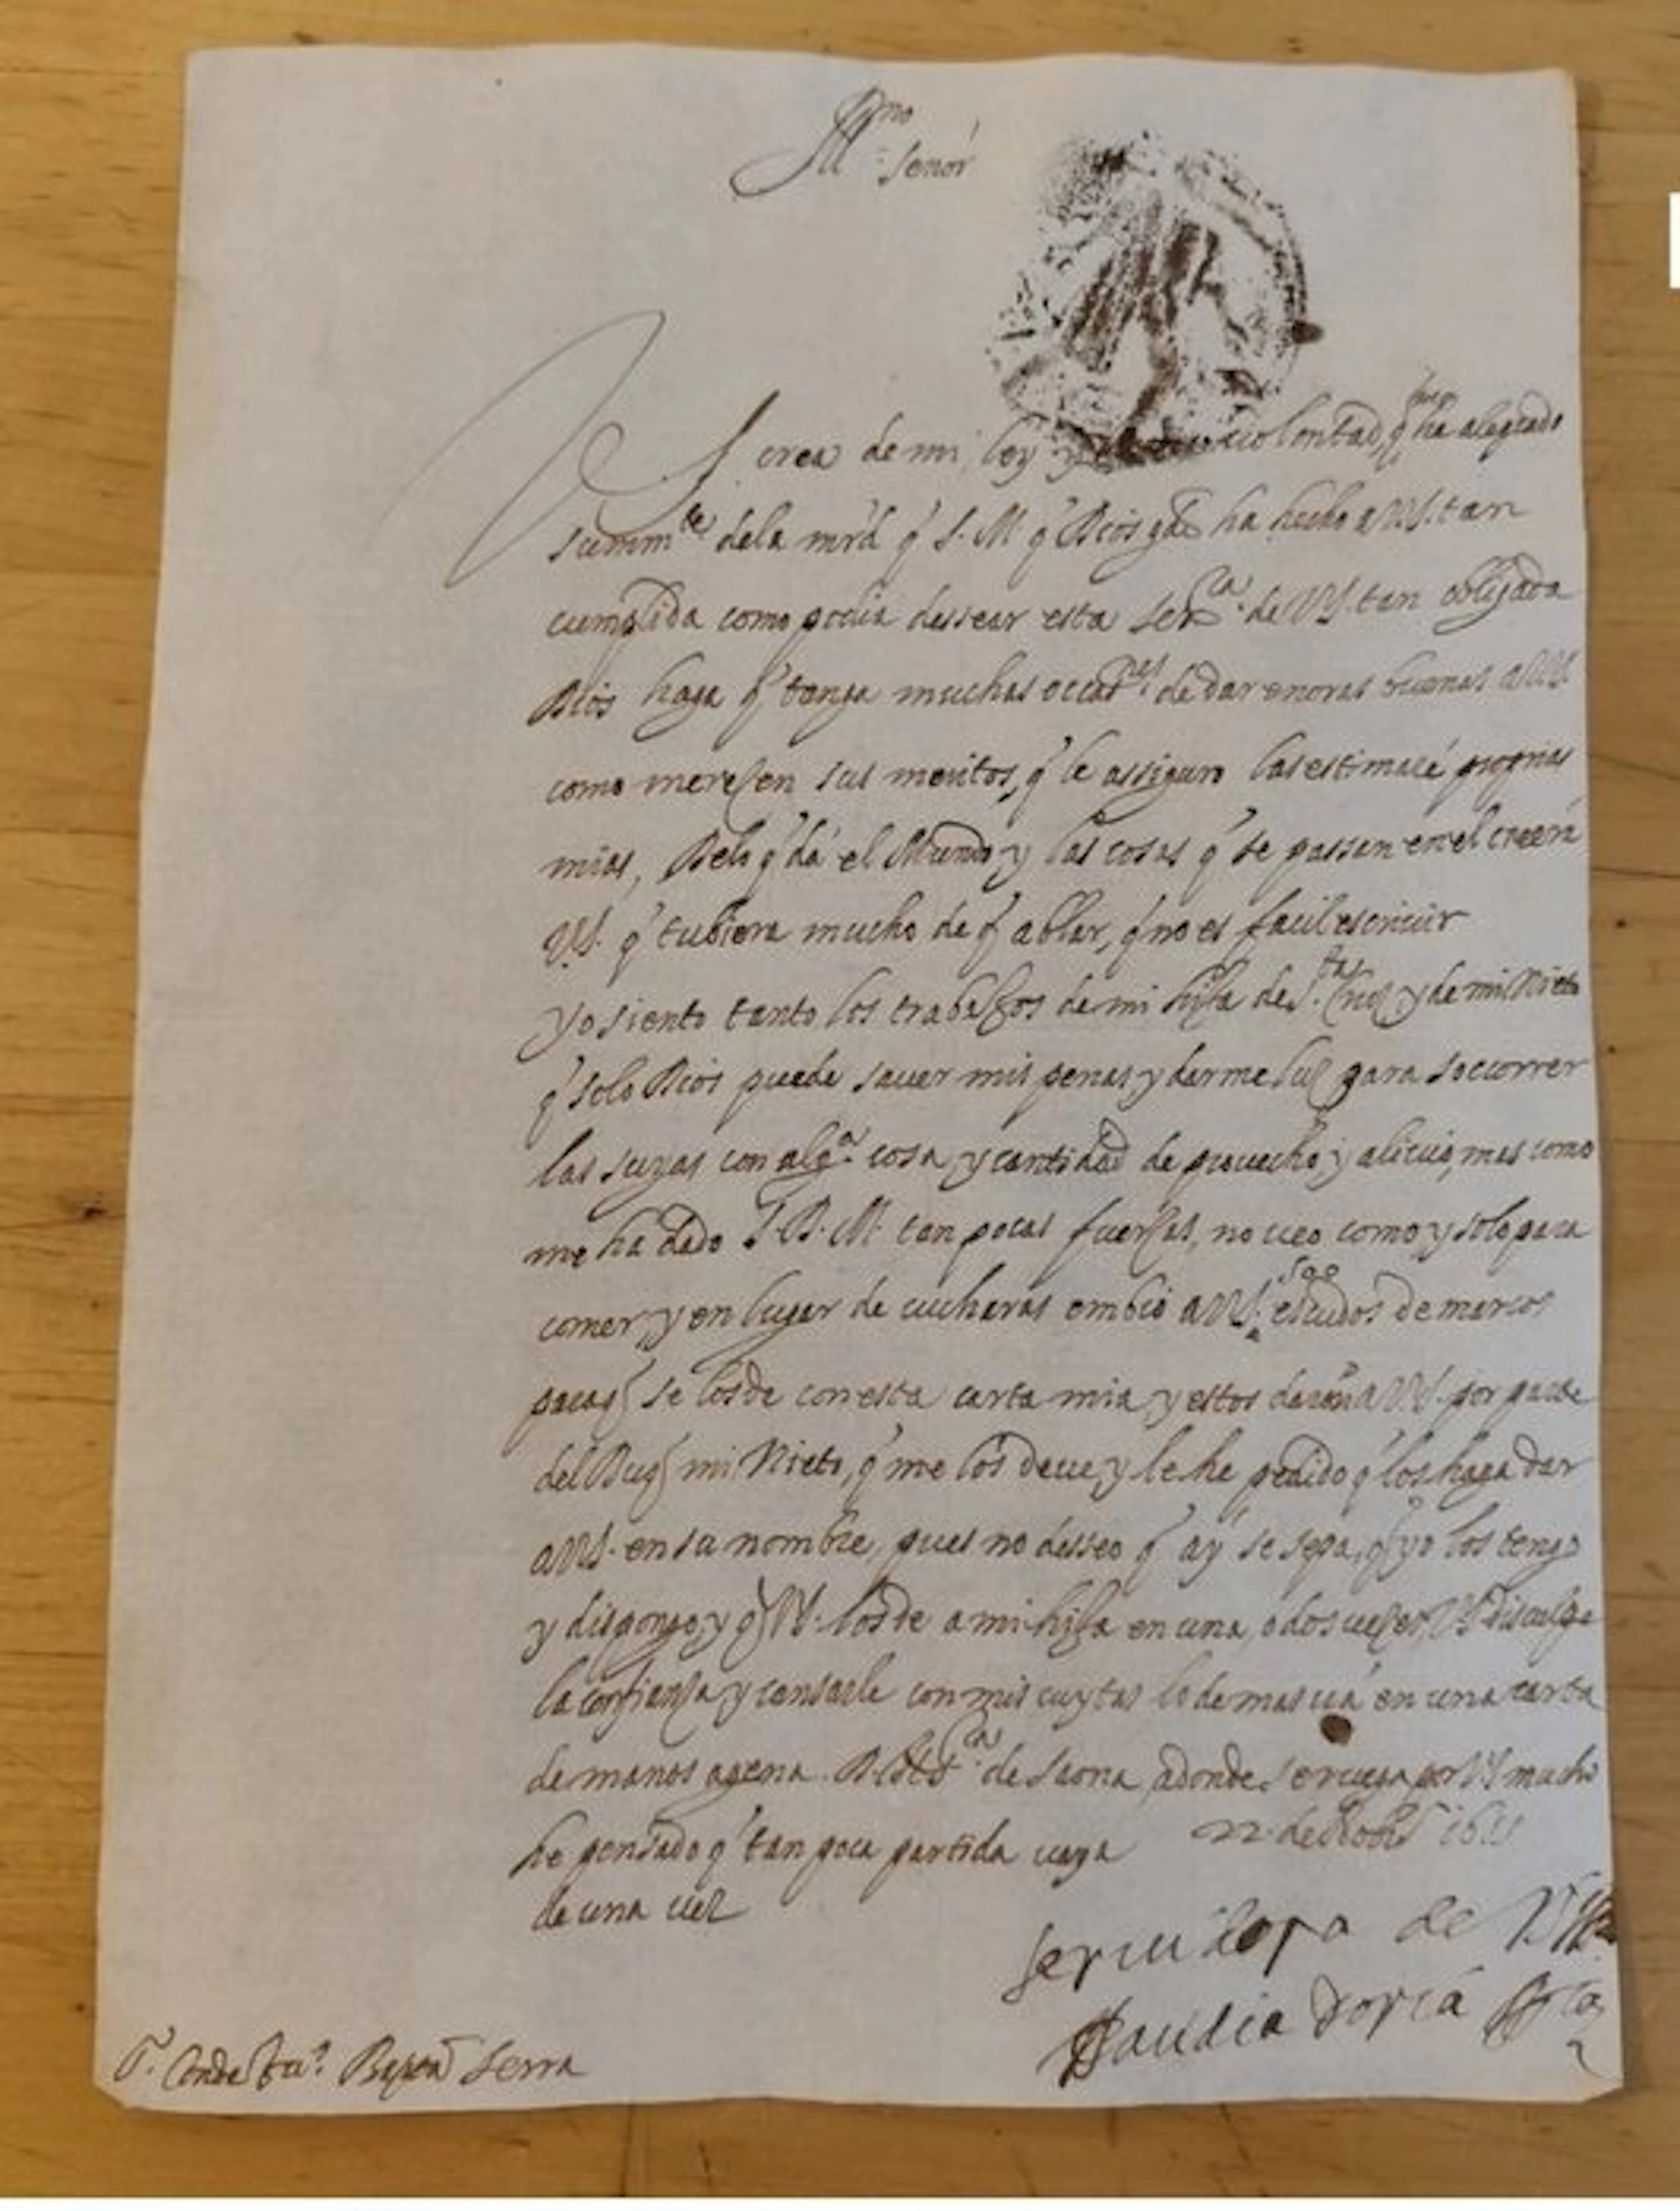 Ill^mo señor
V S crea de mi ley y voluntad, q me ha alegrado
summ^te dela mrd q S.M q Dios gde ha hecho a VS. tan
cumplida como podia dessear esta ser^a. de VS. tan obligada
Dios haga q tenga muchas occas^nes. de dar enoras buenas a VS
como mereçen sus meritos, q le asseguro las estimaré proprias
mias, Delo q dá el Mundo y las cosas q se passan en el creerá
VS. q tubiera mucho de q ablar, q no es facil escriuir
Yo siento tanto los trabaxos de mi hija de S.^ta Cruç y de mi Nieto
q solo Dios puede sauer mis penas y darme luç para soccorrer
las suyas con alg^a. cosa, y cantidad de prouecho, y aliuio, mas como
me ha dado S.D.M. tan pocas fuerças, no veo como y solo para
comer, y en lugar de cucharas embio a VS. 500 escudos de marcos
para q se los de con esta carta mia, y estos darán a VS. por parte
del Duq mi Nieto, q me los deue, y le he pedido q los haga dar
a VS. en su nombre, pues no desseo q ay se sepa, q yo los tengo
y dispongo, y q VS. los de a mi hija en una, o dos ueçes, VS disculpe
la confiança, y cansarle con mis cuytas lo demas uá en una carta
de manos agena. de Saona, adonde se ruega por VS mucho
he pensado q tan poca partida uaya 22. de
de una uez
seruidora de V S
Doria
S.^r Conde Bap^ta Serra